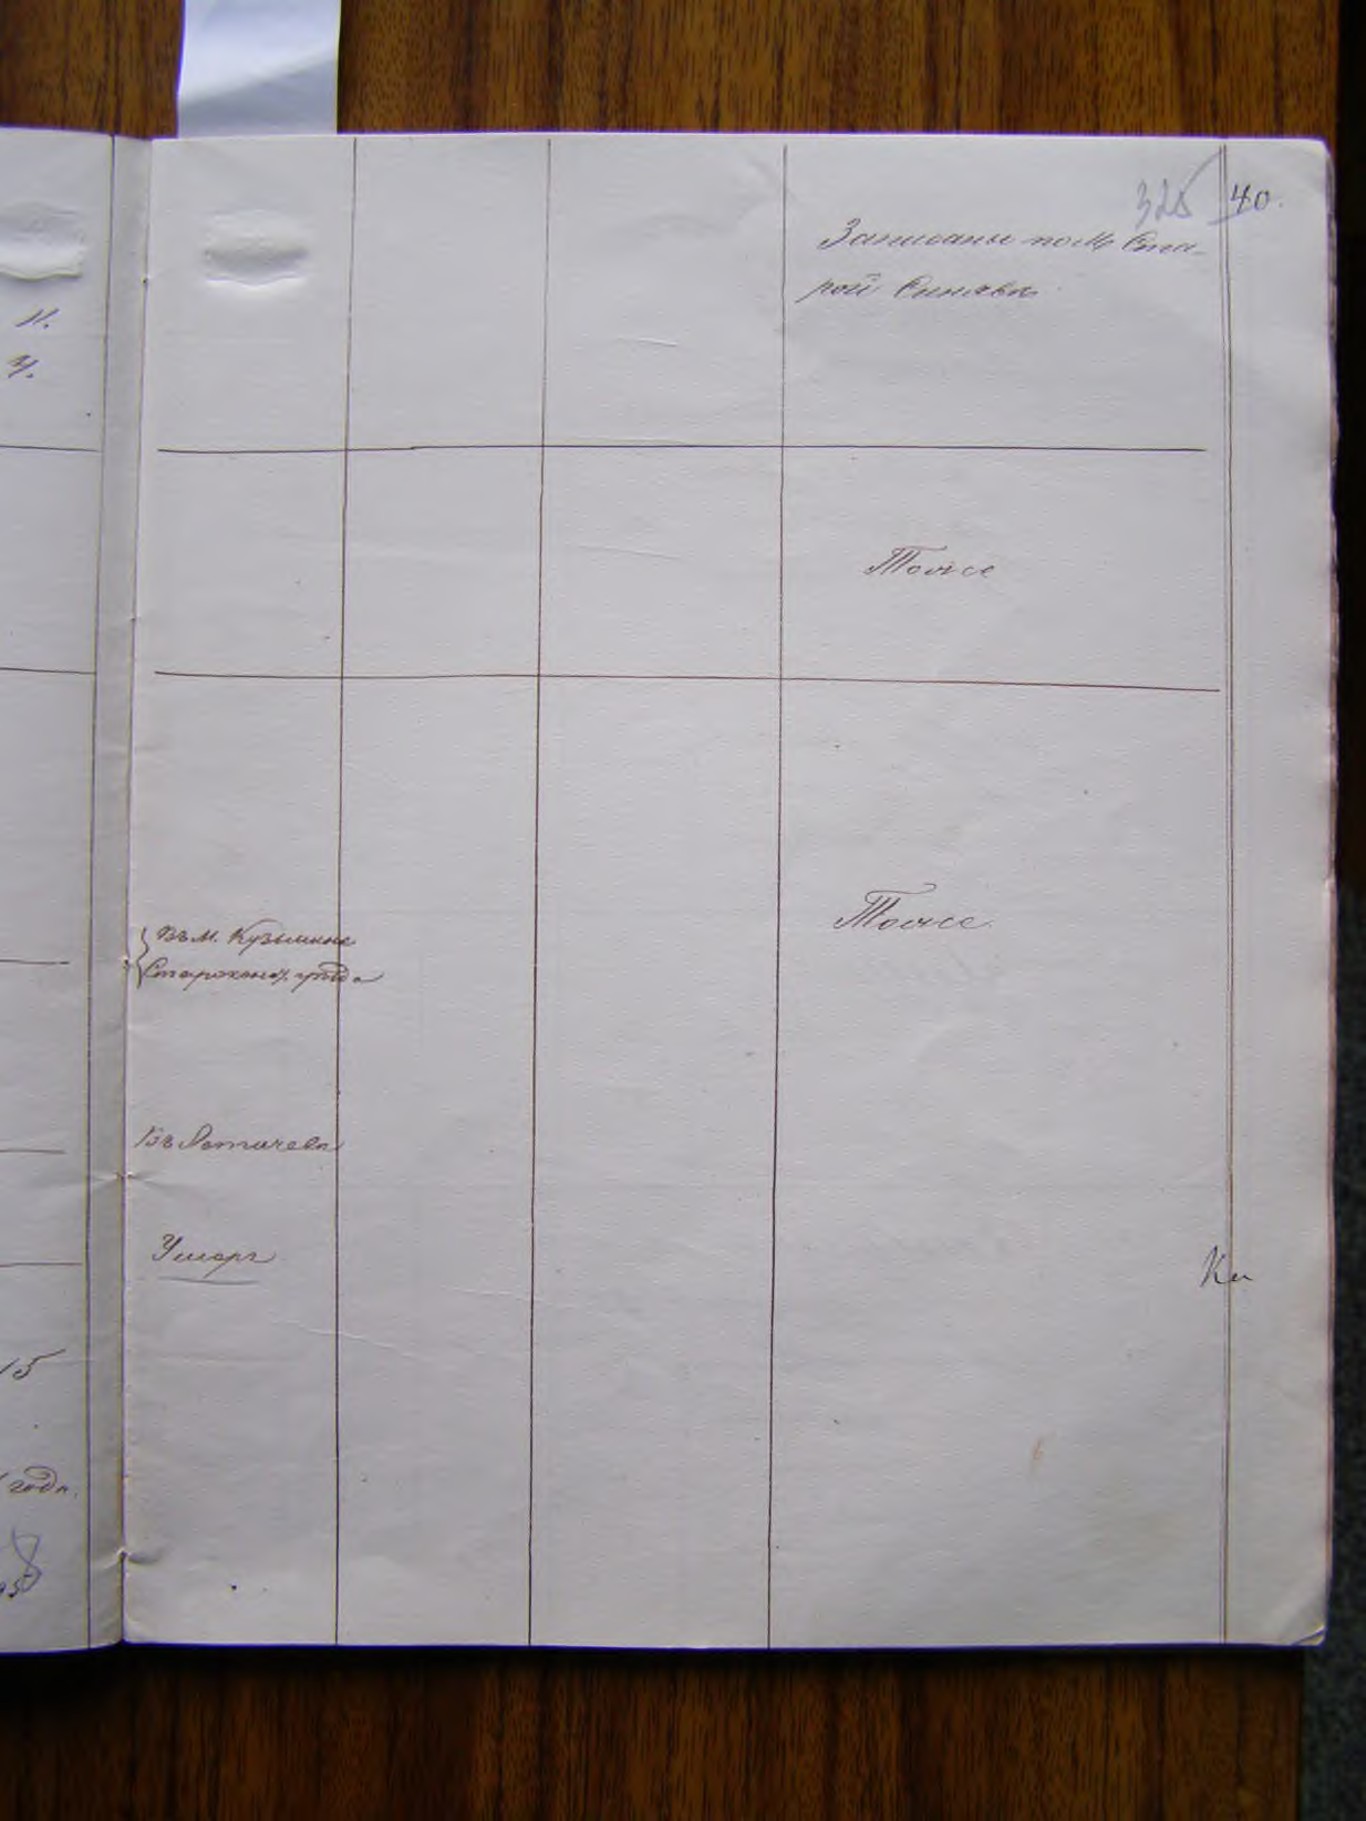 325 40.
Записаны по М. Ста-
рой Синявѣ
11.
Тоже
Тоже
Въ м. Кузьминѣ
Староконст. уѣзда
Въ Летичевѣ
Умеръ
Ки
15
года.